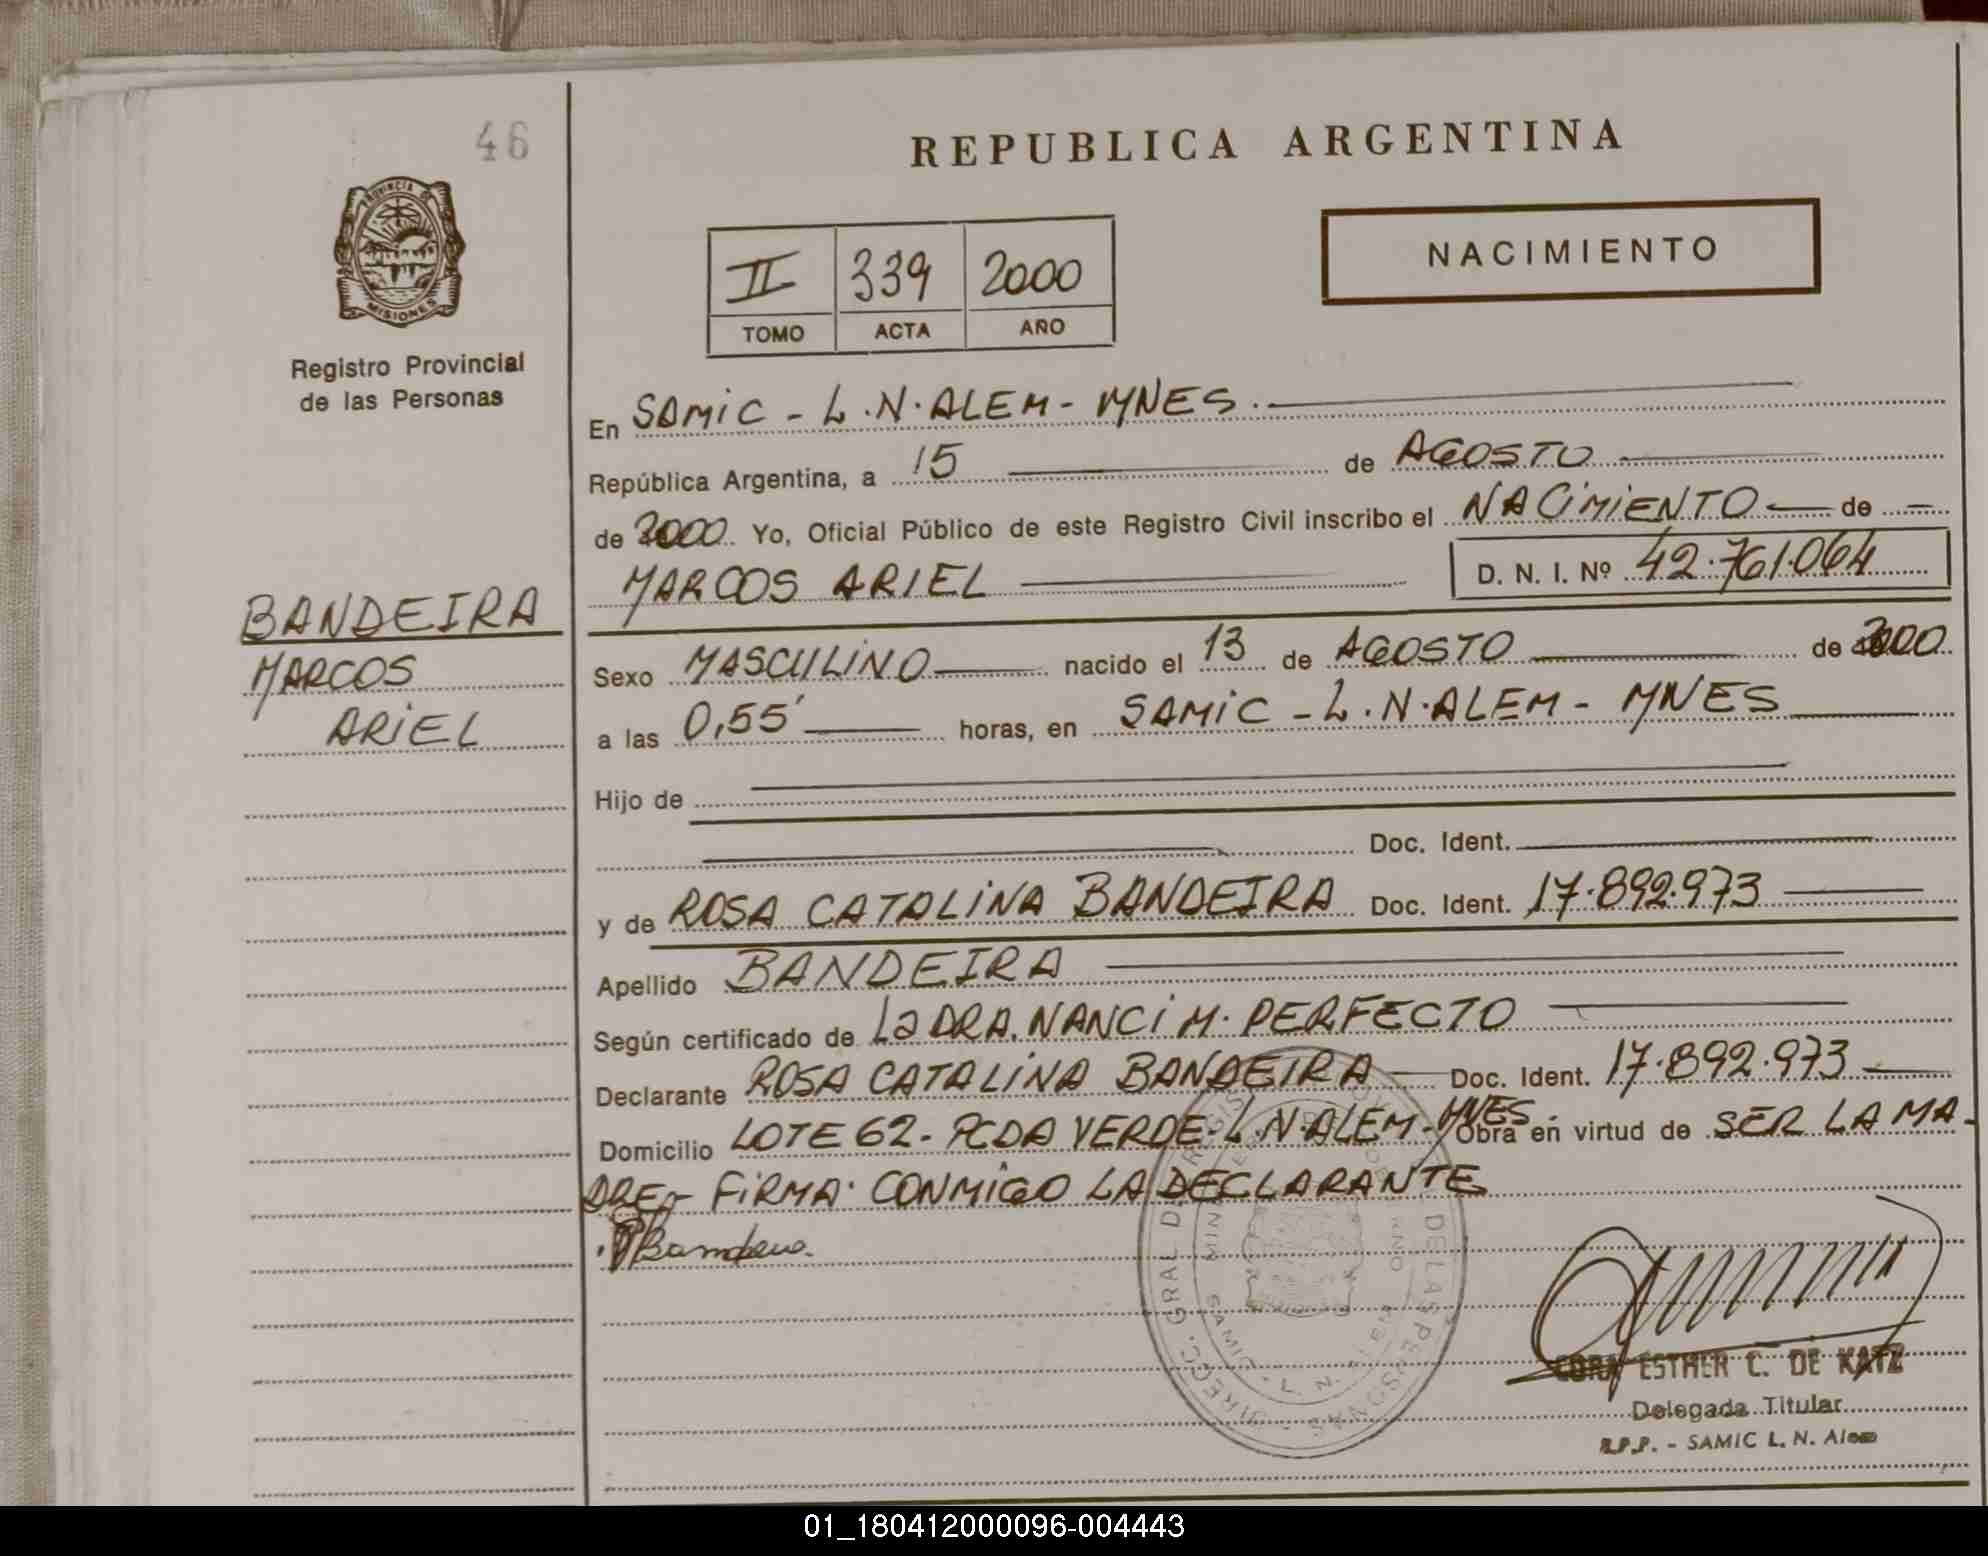 46
REPUBLICA ARGENTINA
PROVINCIA DE
MISIONES
Registro Provincial
de las Personas
II 339 2000
TOMO ACTA AÑO
NACIMIENTO
En SAMIC - L.N. ALEM - MNES.
República Argentina, a 15 de AGOSTO
de 2000 Yo, Oficial Público de este Registro Civil inscribo el NACIMIENTO de
MARCOS ARIEL D. N. I. Nº 42.761.064
BANDEIRA
MARCOS
ARIEL
Sexo MASCULINO nacido el 13 de AGOSTO de 2000
a las 0,55' horas, en SAMIC - L.N. ALEM - MNES
Hijo de
Doc. Ident.
y de ROSA CATALINA BANDEIRA Doc. Ident. 17.892.973
Apellido BANDEIRA
Según certificado de La DRA. NANCI M. PERFECTO
Declarante ROSA CATALINA BANDEIRA Doc. Ident. 17.892.973
Domicilio LOTE 62 - PCDA VERDE - L.N. ALEM - MNES. Obra en virtud de SER LA MA-
DRE - FIRMA CONMIGO LA DECLARANTE
Bandeira
DIRECC. GRAL D REGIS DE LAS PERSONAS
SAMIC - L. N.
CORA ESTHER C. DE KATZ
Delegada Titular
R.P.P. - SAMIC L. N. Alem
01_180412000096-004443